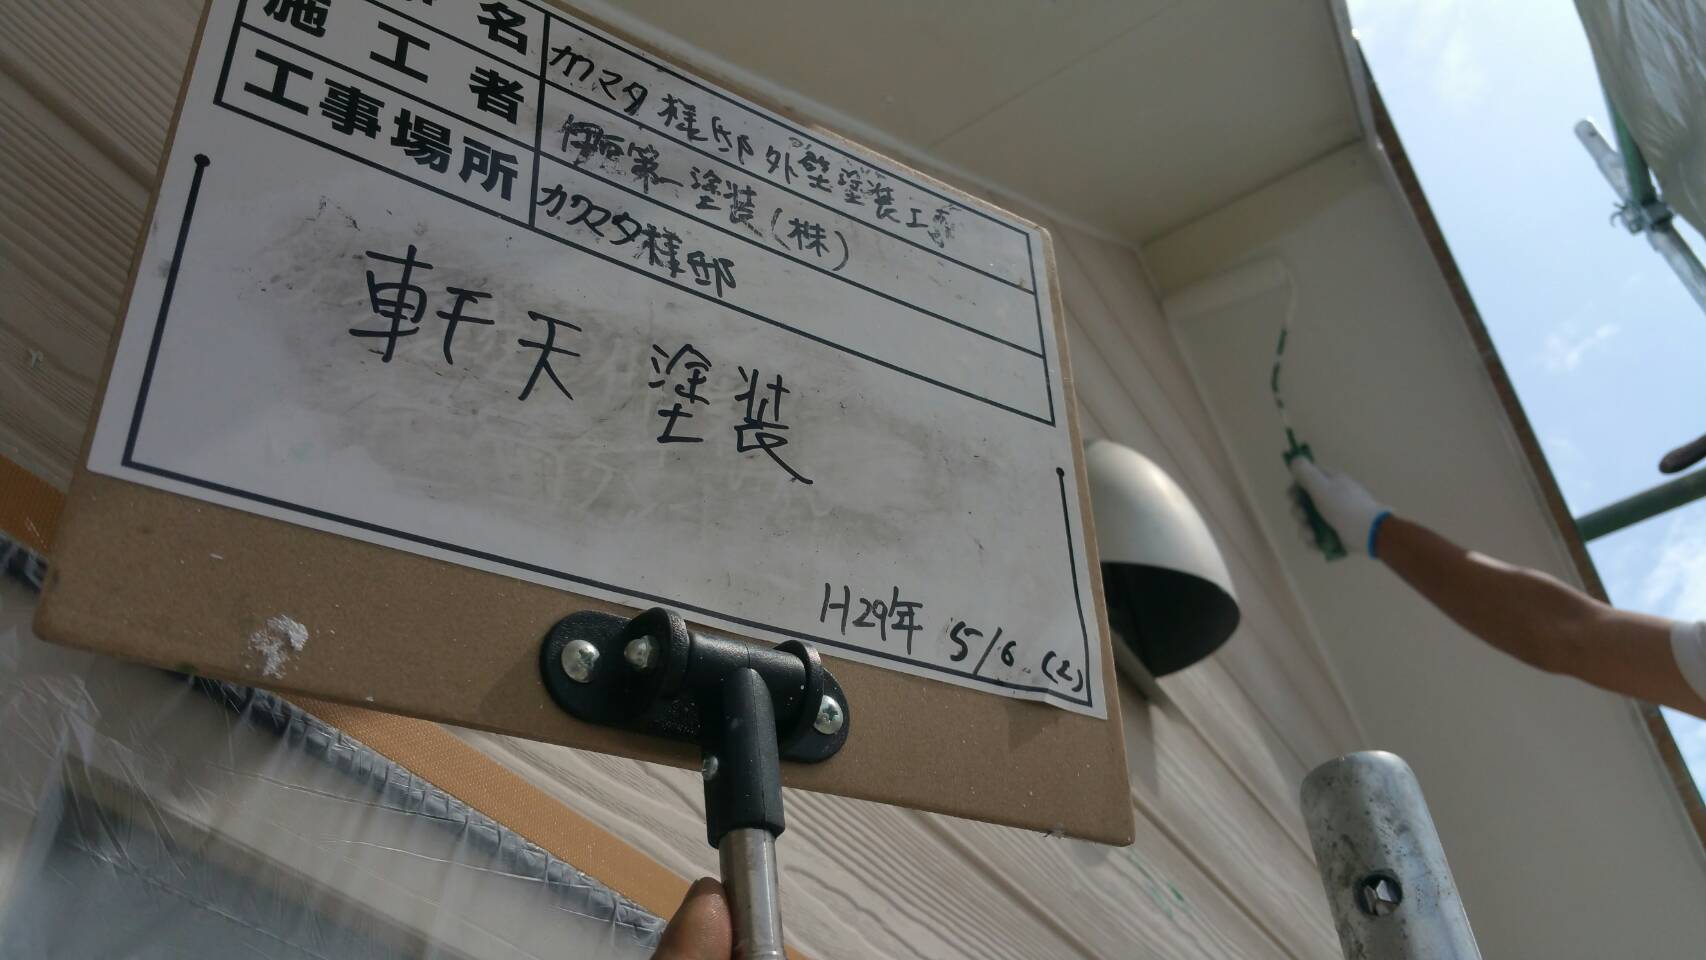 名 カワマタ様邸 外壁塗装工事
施工者 第一塗装(株)
工事場所 カワマタ様邸
軒天 塗装
H29年 5/6 (土)